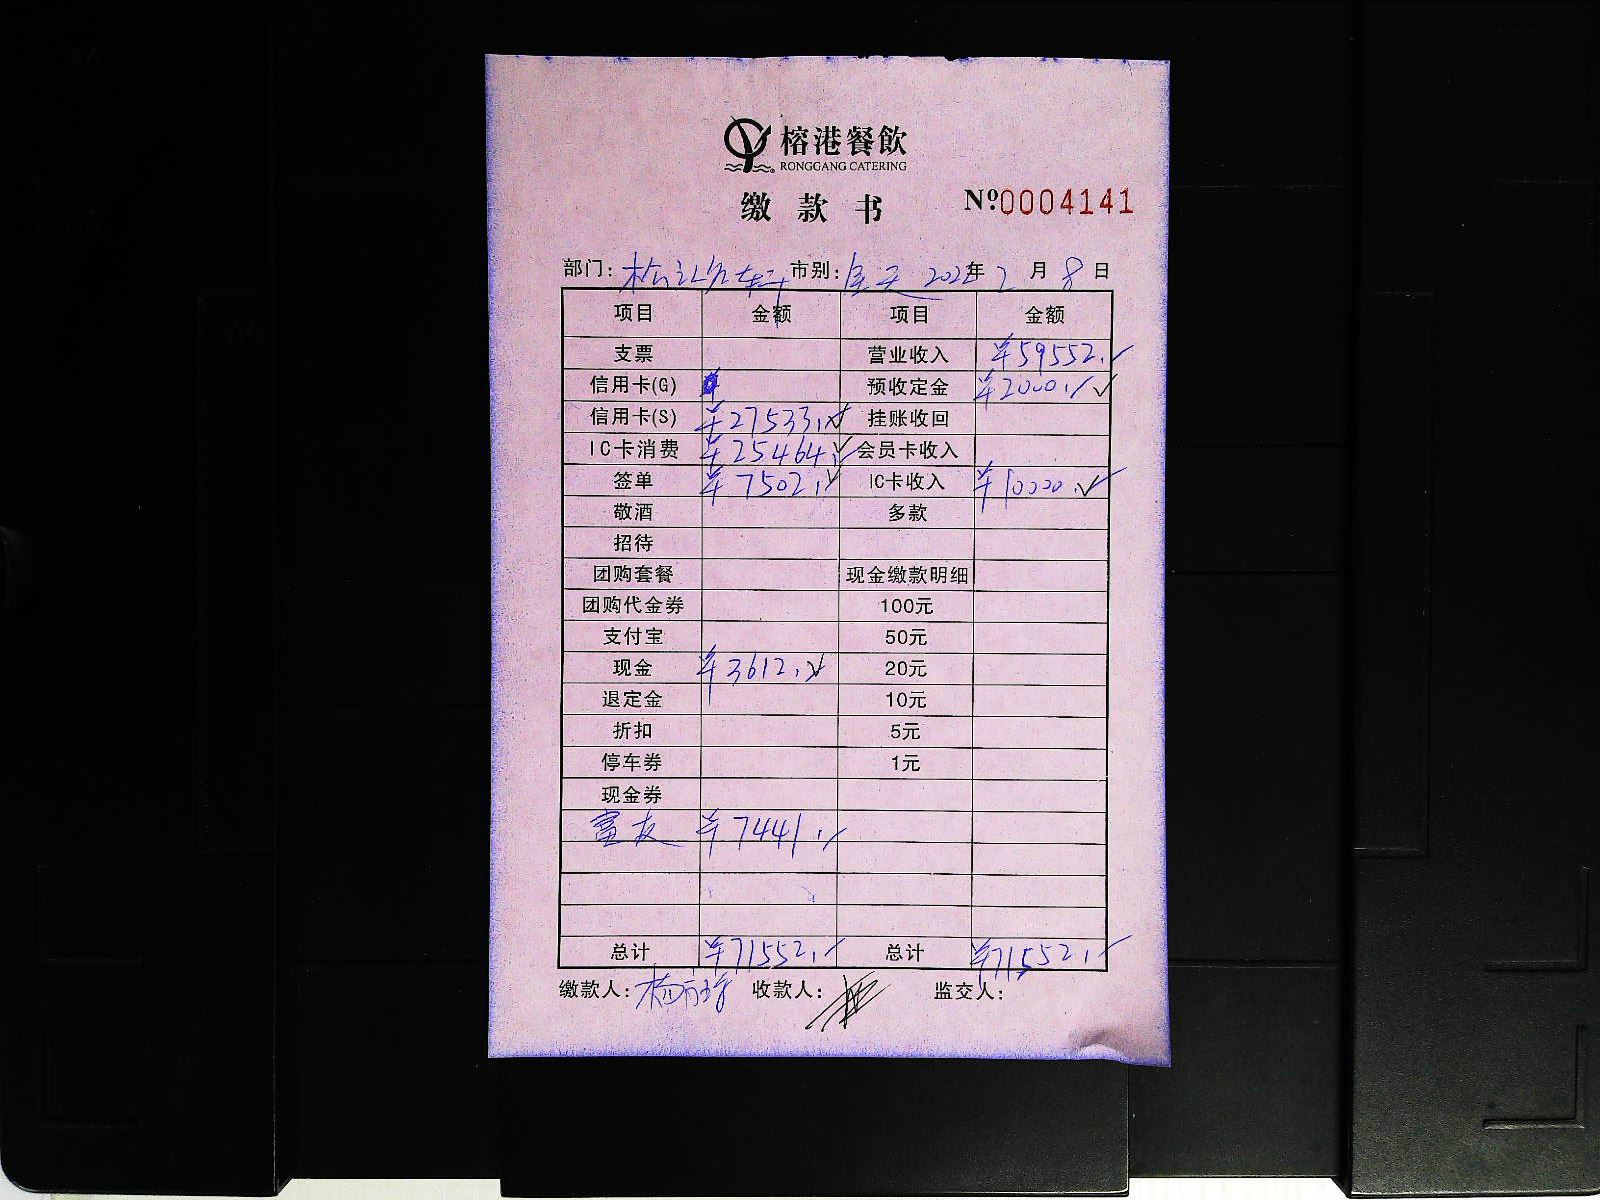 榕港餐飲
RONGGANG CATERING
缴款书 Nº0004141
部门: 市别:全天 2022年2月8日
项目 金额 项目 金额
支票 营业收入 ¥59552.
信用卡(G) ¥ 预收定金 ¥2000.
信用卡(S) ¥27533. 挂账收回
IC卡消费 ¥25464. 会员卡收入
签单 ¥7502. IC卡收入 ¥10000.
敬酒 多款
招待
团购套餐 现金缴款明细
团购代金券 100元
支付宝 50元
现金 ¥3612. 20元
退定金 10元
折扣 5元
停车券 1元
现金券
富友 ¥7441.
总计 ¥71552. 总计 ¥71552.
缴款人: 收款人: 监交人: